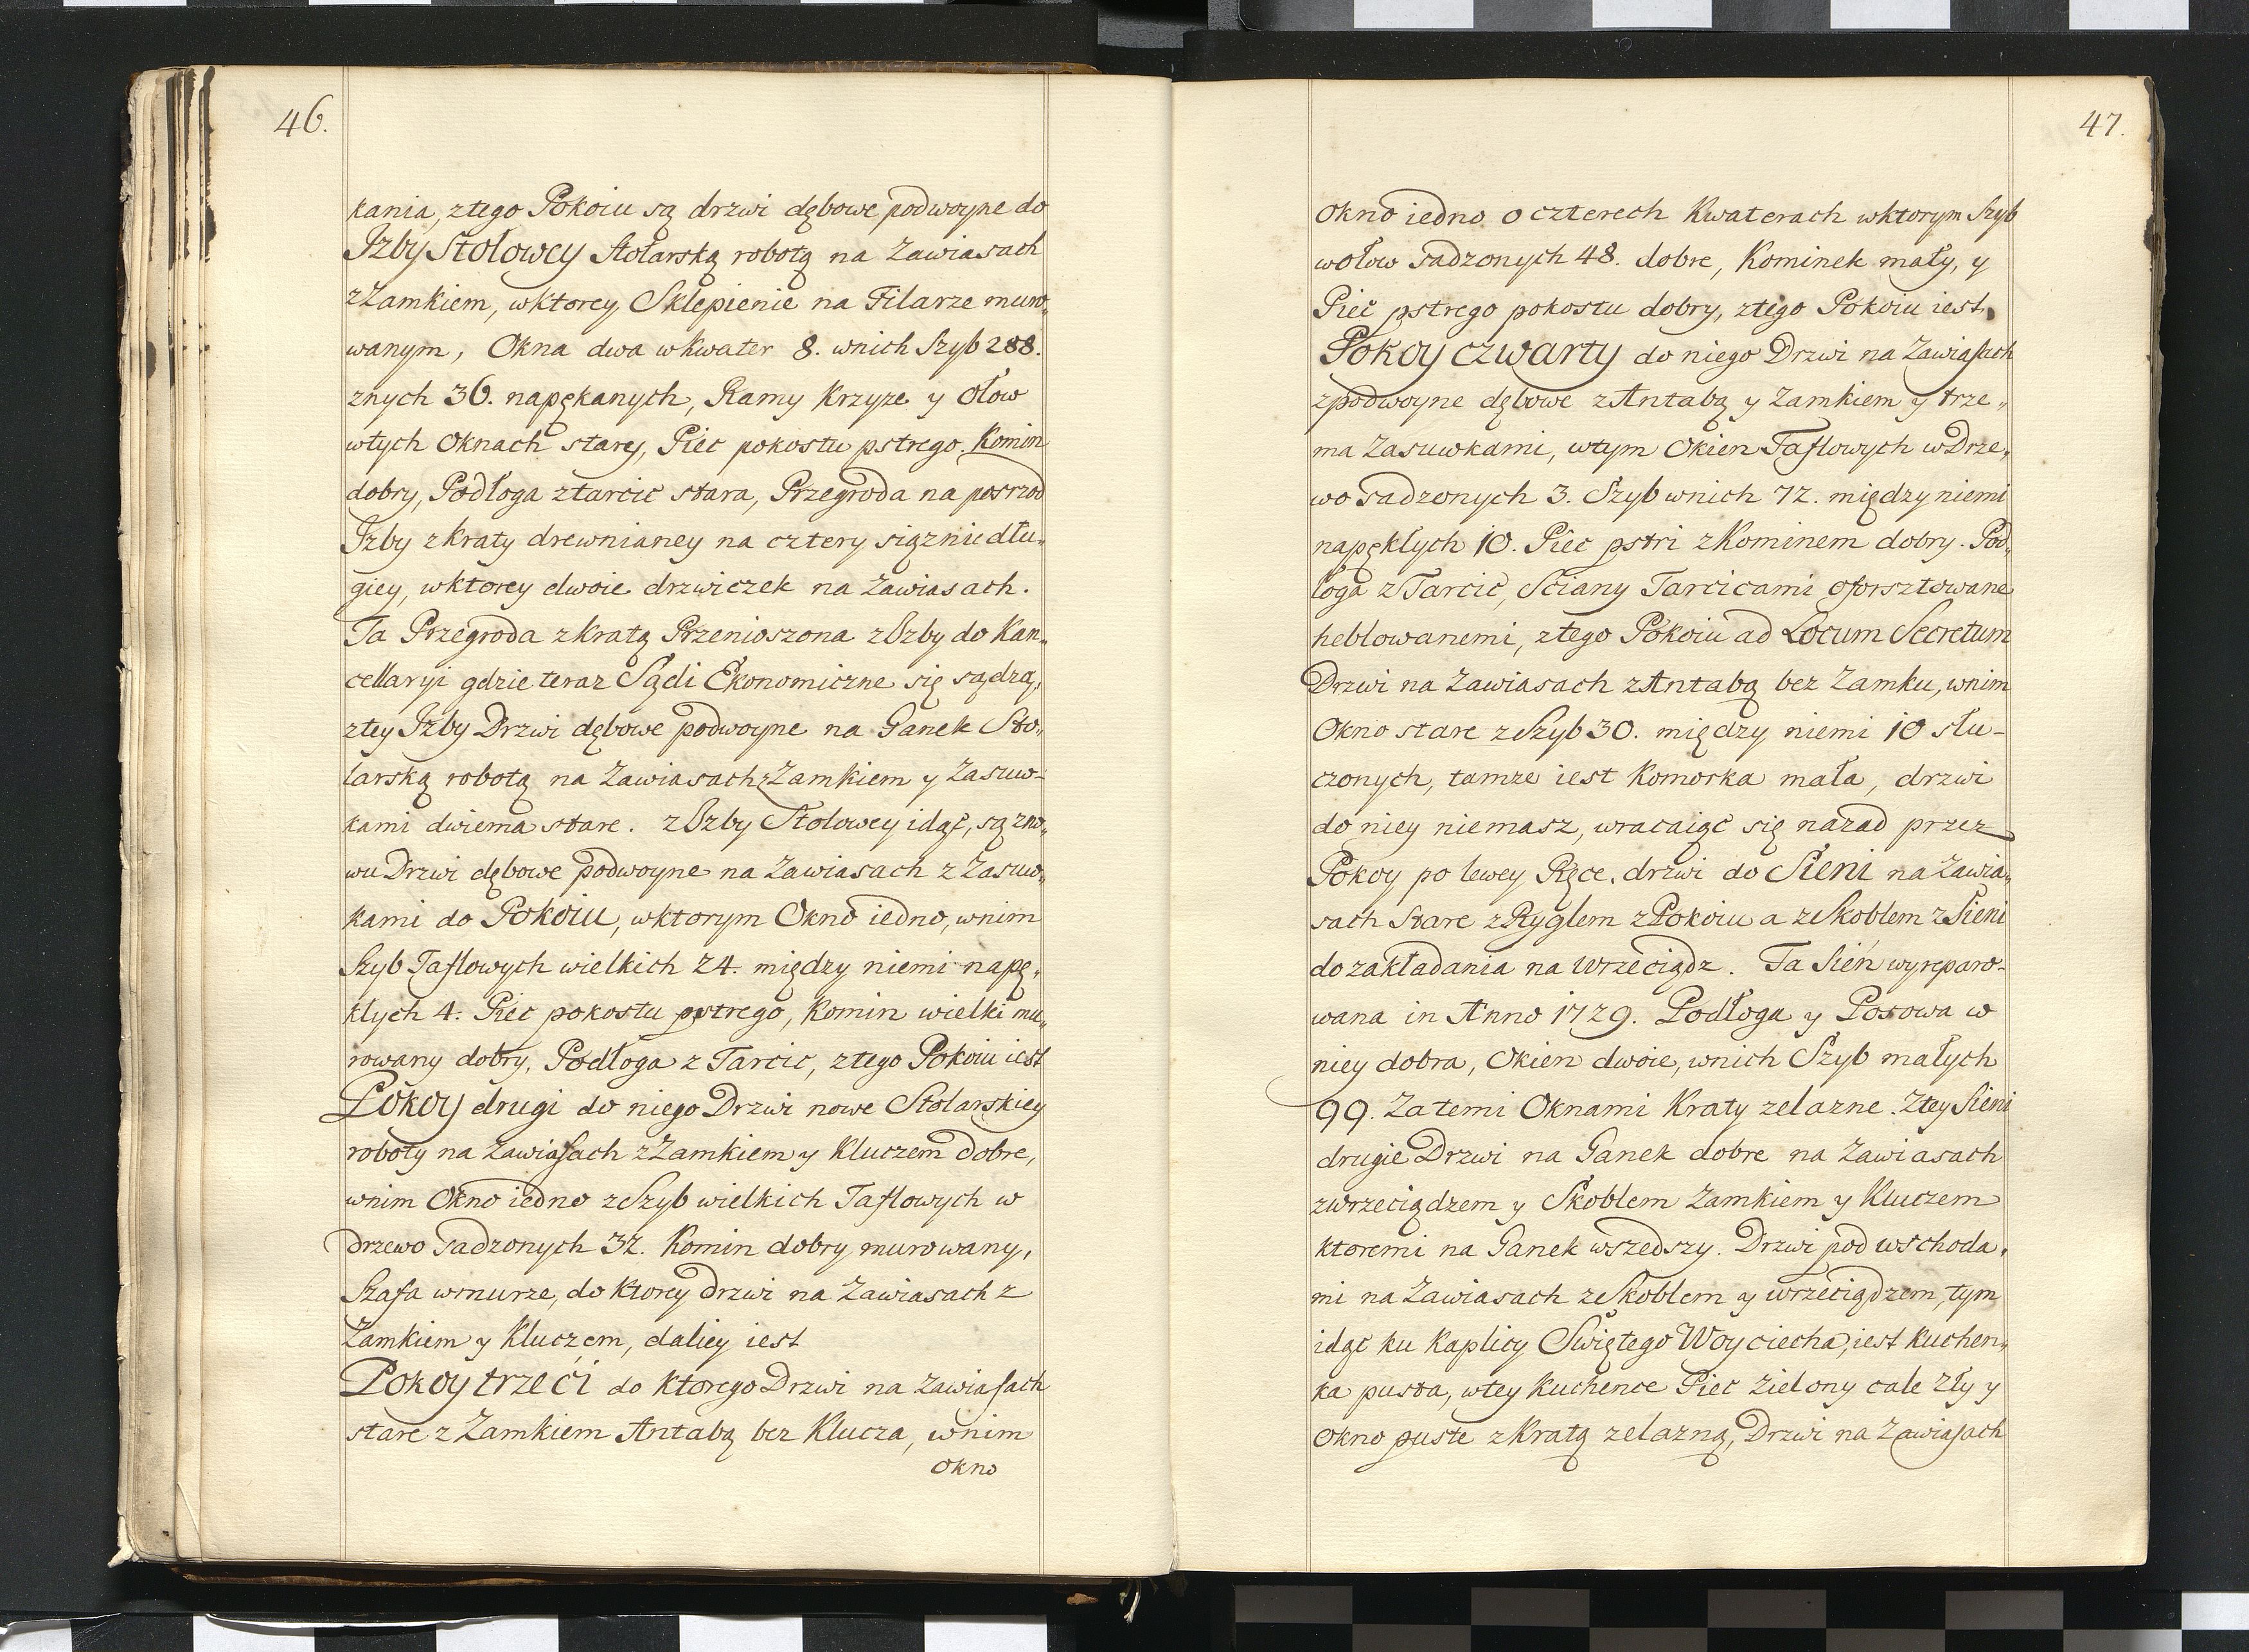 46.
kania, z tego Pokoiu są drzwi dębowe podwoyne do
Izby Stołowey Stolarską robotą na Zawiasach
z Zamkiem, wktorey Sklepienie na Filarze muro„
wanym, Okna dwa w Kwater 8. wnich Szyb 288.
znych 36. napękanych, Ramy Krzyze y Ołow
wtych Oknach stary, Piec pokostu pstrego. Komin
dobry, Podłoga ztarcic stara, Przegroda na posrzod
Izby z Kraty drewnianey na cztery siązni dłu„
giey, wktorey dwoie drzwiczek na Zawiasach.
Ta Przegroda z Kratą Przenioszona z Izby do Kan„
cellaryi gdzie teraz Sądi Ekonomiczne się sądzą,
ztey Izby Drzwi dębowe podwoyne na Ganek Sto„
larską robotą na Zawiasach z Zamkiem y Zasuw-
kami dwiema stare. z Izby Stolowey idąć, są zno„
wu Drzwi dębowe podwoyne na Zawiasach z Zasuw„
kami do Pokoiu, wktorym Okno iedno, wnim
Szyb Taflowych wielkich 24. między niemi napę„
klych 4. Piec pokostu pstrego, Komin wielki mu„
rowany dobry, Podłoga z Tarcic, ztego Pokoiu iest
Pokoy drugi do niego Drzwi nowe Stolarskiey
roboty na Zawiasach z Zamkiem y Kluczem dobre,
wnim Okno iedno z Szyb wielkich Taflowych w
drzewo sadzonych 32. Komin dobry murowany,
Szafa wmurze, do Ktorey drzwi na Zawiasach z
Zamkiem y Kluczem, daliey iest
Pokoy trzeći do Ktorego Drzwi na Zawiasach
stare z Zamkiem Antabą bez Klucza, wnim
okno
47.
okno iedno o czterech Kwaterach wktorym Szyb
wołow sadzonych 48. dobre, Kominek mały, y
Piec pstrego pokostu dobry, ztego Pokoiu iest
Pokoy czwarty do niego Drzwi na Zawiasach
zpodwoyne dębowe z Antabą y Zamkiem y trze„
ma Zasuwkami, wtym Okien Taflowych w Drze„
wo sadzonych 3. Szyb wnich 72. między niemi
napękłych 10. Piec pstri z Kominem dobry. Pod„
łoga z Tarcic, Sciany Tarcicami oforsztowane
heblowanemi, ztego Pokoiu ad Locum Secretum
Drzwi na Zawiasach z Antabą bez Zamku, wnim
Okno stare z Szyb 30. między niemi 10 stłu-
czonych, tamze iest Komorka mała, drzwi
do niey niemasz, wracaiąc się nazad przez
Pokoy po lewey Ręce, drzwi do Sieni na Zawia„
sach Stare z Ryglem z Pokoiu a ze Skoblem z Sieni
do zakładania na wrzeciądz. Ta Sień wyreparo-
wana in Anno 1729. Podłoga y Posowa w
niey dobra, Okien dwoie, wnich Szyb małych
99. Za temi Oknami Kraty zelazne. Ztey Sieni
drugie Drzwi na Ganek dobre na Zawiasach
zwrzeciądzem y Skoblem Zamkiem y Kluczem
ktoremi na Ganek wszedszy. Drzwi pod wschoda„
mi na Zawiasach ze Skoblem y wrzeciądzem, tym
idąc ku Kaplicy Swiętego Woyciecha, iest Kuchen„
ka pusta, wtey Kuchence Piec Zielony cale zły y
okno puste z Kratą zelazną, Drzwi na Zawiasach